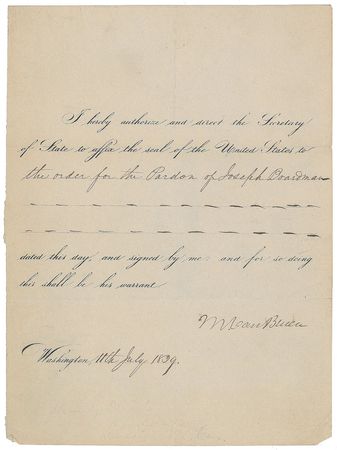 I hereby authorize and direct the Secretary
of State to affix the seal of the United States to
the order for the Pardon of Joseph Boardman
dated this day, and signed by me: and for so doing
this shall be his warrant
M Van Buren
Washington, 11th July 1839.